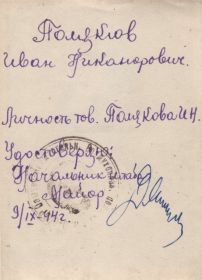 Поляков
Иван Никанорович.
Личность тов. Полякова И.Н.
Удостоверяю:
Начальник штаба
Майор
9/IX-44г.